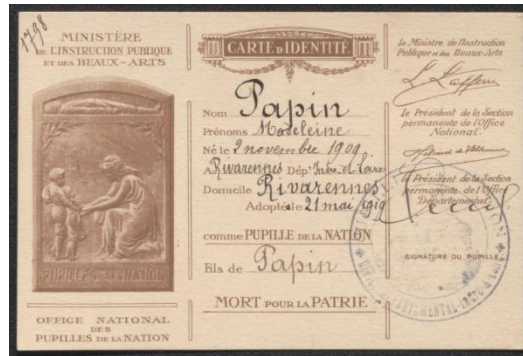 1798
MINISTÈRE
DE L'INSTRUCTION PUBLIQUE
ET DES BEAUX-ARTS
PUPILLES DE LA NATION
OFFICE NATIONAL
DES
PUPILLES DE LA NATION
CARTE D'IDENTITÉ
Nom Papin
Prénoms Madeleine
Né le 9 novembre 1909
A Rivarennes Dép^t Indre et Loire
Domicile Rivarennes
Adopté le 21 mai 1919
comme PUPILLE DE LA NATION
fils de Papin
MORT POUR LA PATRIE
Le Ministre de l'Instruction
Publique et des Beaux-Arts
Le Président de la Section
permanente de l'Office
National.
Le Président de la Section
permanente de l'Office
Départemental.
SIGNATURE DU PUPILLE